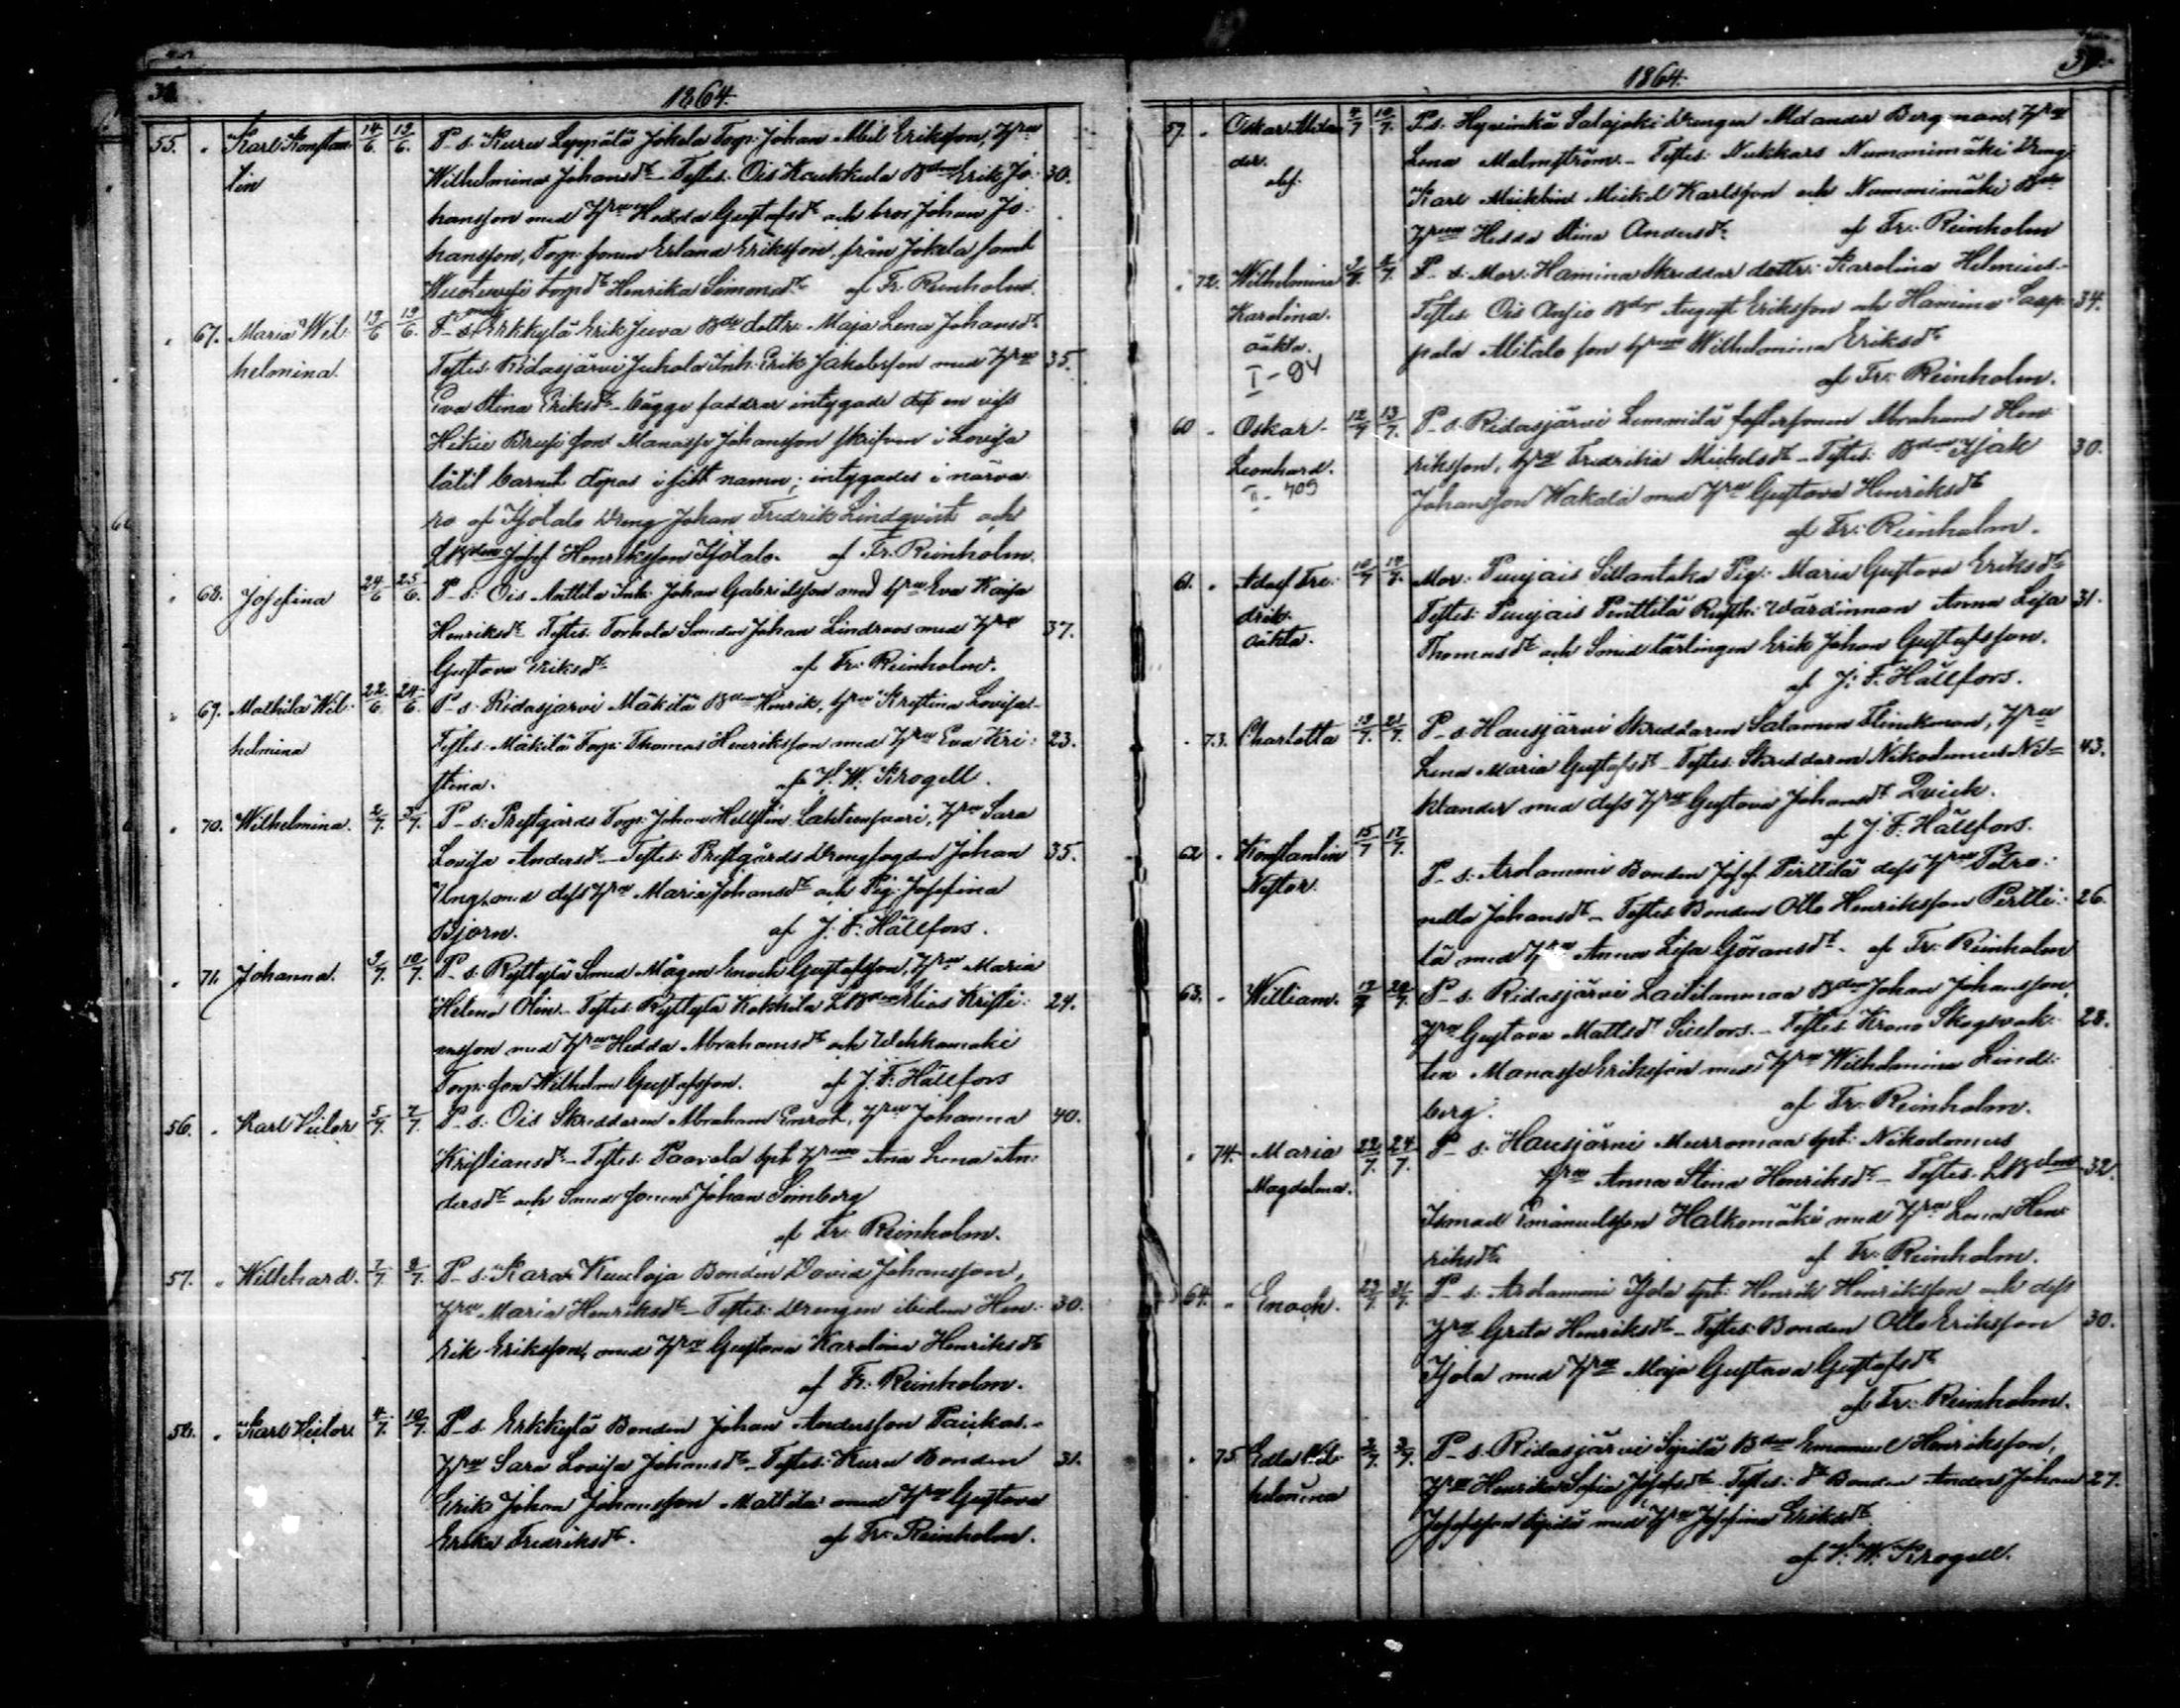 1864.
55. " Karl Konstan- 14/6 19/6. P-s. Kuru Leppälä Jokela Torp. Johan Abel Eriksson, Hru
tin Wilhelmina Johansdr - Testes: Ois Kaukkula Bdn Erik Jo- 30.
hansson med Hru Hedda Gustafsdr och bror Johan Jo-
hansson, Torp. sonen Erland Eriksson från Jokela samt
torpdr Henrika Simonsdr af Fr. Reinholm.
" 67. Maria Wil- 19/6 19/6. P-s. Erkkylä Erik Juva Bde dottr. Maja Lena Johansdr
helmina. Testes: Ridasjärvi Juhola Inh. Erik Jakobsson med Hru 35.
Eva Stina Eriksdr - bägge faddrar intygade det en viss
son Manasse Johansson skrifven i Lovisa
låtit barnet döpas i sitt namn; intygades i närva-
ro af Isotalo Dreng Johan Fredrik Lindqvist och
Josef Henriksson Isotalo. af Fr. Reinholm.
" 68. Josefina 24/6 25/6. P-s: Ois Anttila Inh. Johan Gabrielsson med Hru Eva Kaisa
Henriksdr Testes: Torhola Smeden Johan Lindroos med Hru 37.
Gustava Eriksdr af Fr. Reinholm.
" 69. Mathilda Wil- 22/6 24/6. P-s: Ridasjärvi Mäkilä Bdn Henrik, Hru Kristina Lovisa -
helmina Testes: Mäkilä Torp. Thomas Henriksson med Hru Eva Kri- 23.
stina. af V. W. Krogell.
" 70. Wilhelmina. 2/7. 3/7. P-s: Prestgårds Torp. Johan Hellstén Lahteensuari, Hru Sara
Lovisa Andersdr - Testes: Prestgårds Drengfogden Johan 35.
Ung, med dess Hru Maria Johansdr och Pig. Josefina
Björn. af J. F. Hällfors.
" 71. Johanna. 3/7. 10/7. P-s. Ryttylä Smed Mågen Enoch Gustafsson, Hru Maria
Helena Olin - Testes: Ryttylä Kokkila LBdn Elias Kristi- 24.
ansson med Hru Hedda Abrahamsdr och Wehkamäki
Torp. son Wilhelm Gustafsson. af J. F. Hällfors
56. " Karl Victor 5/7. 7/7. P-s. Ois Skreddaren Abraham Enrot, Hru Johanna 40.
Kristiansdr - Testes: Paavola Spt Hrun Ana Lena An-
dersdr och Smed sonen Johan Simberg
af Fr. Reinholm.
57. " Willehard. 7/7. 8/7. P-s. Kara Kuuloja Bonden David Johansson,
Hru Maria Henriksdr - Testes: Drengen ibidem Hen- 30.
rik Eriksson, med Hru Gustava Karolina Henriksdr
af Fr. Reinholm.
58. " Karl Victor 4/7. 10/7. P-s. Erkkylä Bonden Johan Andersson Paukas. -
Hru Sara Lovisa Johansdr - Testes: Kuru Bonden 31.
Erik Johan Johansson Mattila med Hru Gustava
Erika Fredriksdr. af Fr. Reinholm.
1864.
59. " Oskar Alexan- 4/7 10/7. P-s. Hyvinkä Salajoki Drengen Bergman, Hru
der. Lena Malmström - Testes: Nukkars Nummimäki Dreng
Karl Mickel Karlsson och Nummimäki
Hrun Hedda Stina Andersdr af Fr. Reinholm
" 72. Wilhelmina 8/7. P-s: Mor. Hamina Skreddar dottr. Karolina Helenius -
Karolina. Testes: Ois Ansio Bdn August Eriksson och Hamina 34.
oäkta. Alitalo son hrun Wilhelmina Eriksdr
I-84 af Fr. Reinholm.
60 - Oskar 12/7 13/7. P-s. Ridasjärvi Lemmilä fostersonen Abraham Hen-
Leonhard. riksson, Hru Fredrika Mickelsdr - Testes: Bdn Isak 30.
Johansson Wakala med Hru Gustava Henriksdr
af Fr. Reinholm.
61. " Adolf Fre- 10/7 17/7. Mor: Puujais Sillantaka Pig. Maria Gustava Eriksdr
drik. Testes: Puujais Penttilä Rusth. wärdinnan Anna Lisa 31.
oäkta. Thomasdr och Smid lärlingen Erik Johan Gustafsson.
af J. F. Hällfors.
" 73. Charlotta 19/7. 21/7. P-s. Hausjärvi Skreddaren Salamon Flinckman, Hru
Lena Maria Gustafsdr - Testes: Skreddaren Nikodemus 43.
med dess Hru Gustava Johansdr Qvick.
af J. F. Hällfors.
62 " Konstantin 15/7 17/7. P-s: Arolammi Bonden Josef Pirttilä dess Hru Petro-
Nestor. nella Johansdr - Testes: Bonden Otto Henriksson Pertti- 26.
lä med Hru Anna Lisa Göransdr - af Fr. Reinholm
63. " William. 17/7 20/7. P-s. Ridasjärvi Laitilanmaa Bdn Johan Johansson,
Hru Gustava Mattsdr - Testes: Krono Skogsvak- 28.
ten Manasse Eriksson med Hru Wilhelmina Lind-
berg. af Fr. Reinholm.
" 74. Maria 22/7. 24/7. P-s: Hausjärvi Murromaa Spt. Nikodemus
Magdalena. Hru Anna Stina Henriksdr - Testes: LBdn 32.
Ismael Emanuelsson Halkomäki med Hru Lena Hen-
riksdr af Fr. Reinholm.
64. " Enoch. 23/7. 31/7. P-s: Arolammi Isola Spt. Henrik Henriksson och dess
Hru Greta Henriksdr - Testes: Bonden Otto Eriksson 30.
Isola med Hru Maja Gustava Gustafsdr
af Fr. Reinholm.
" 75. Edla Wil- P-s. Ridasjärvi Syrilä Bdn Emanuel Henriksson,
helmina Hru Henrika Sofia Josefsdr - Testes: Bonden Anders Johan 27.
Josefsson med Hru Josefina Eriksdr
af V. W. Krogell.